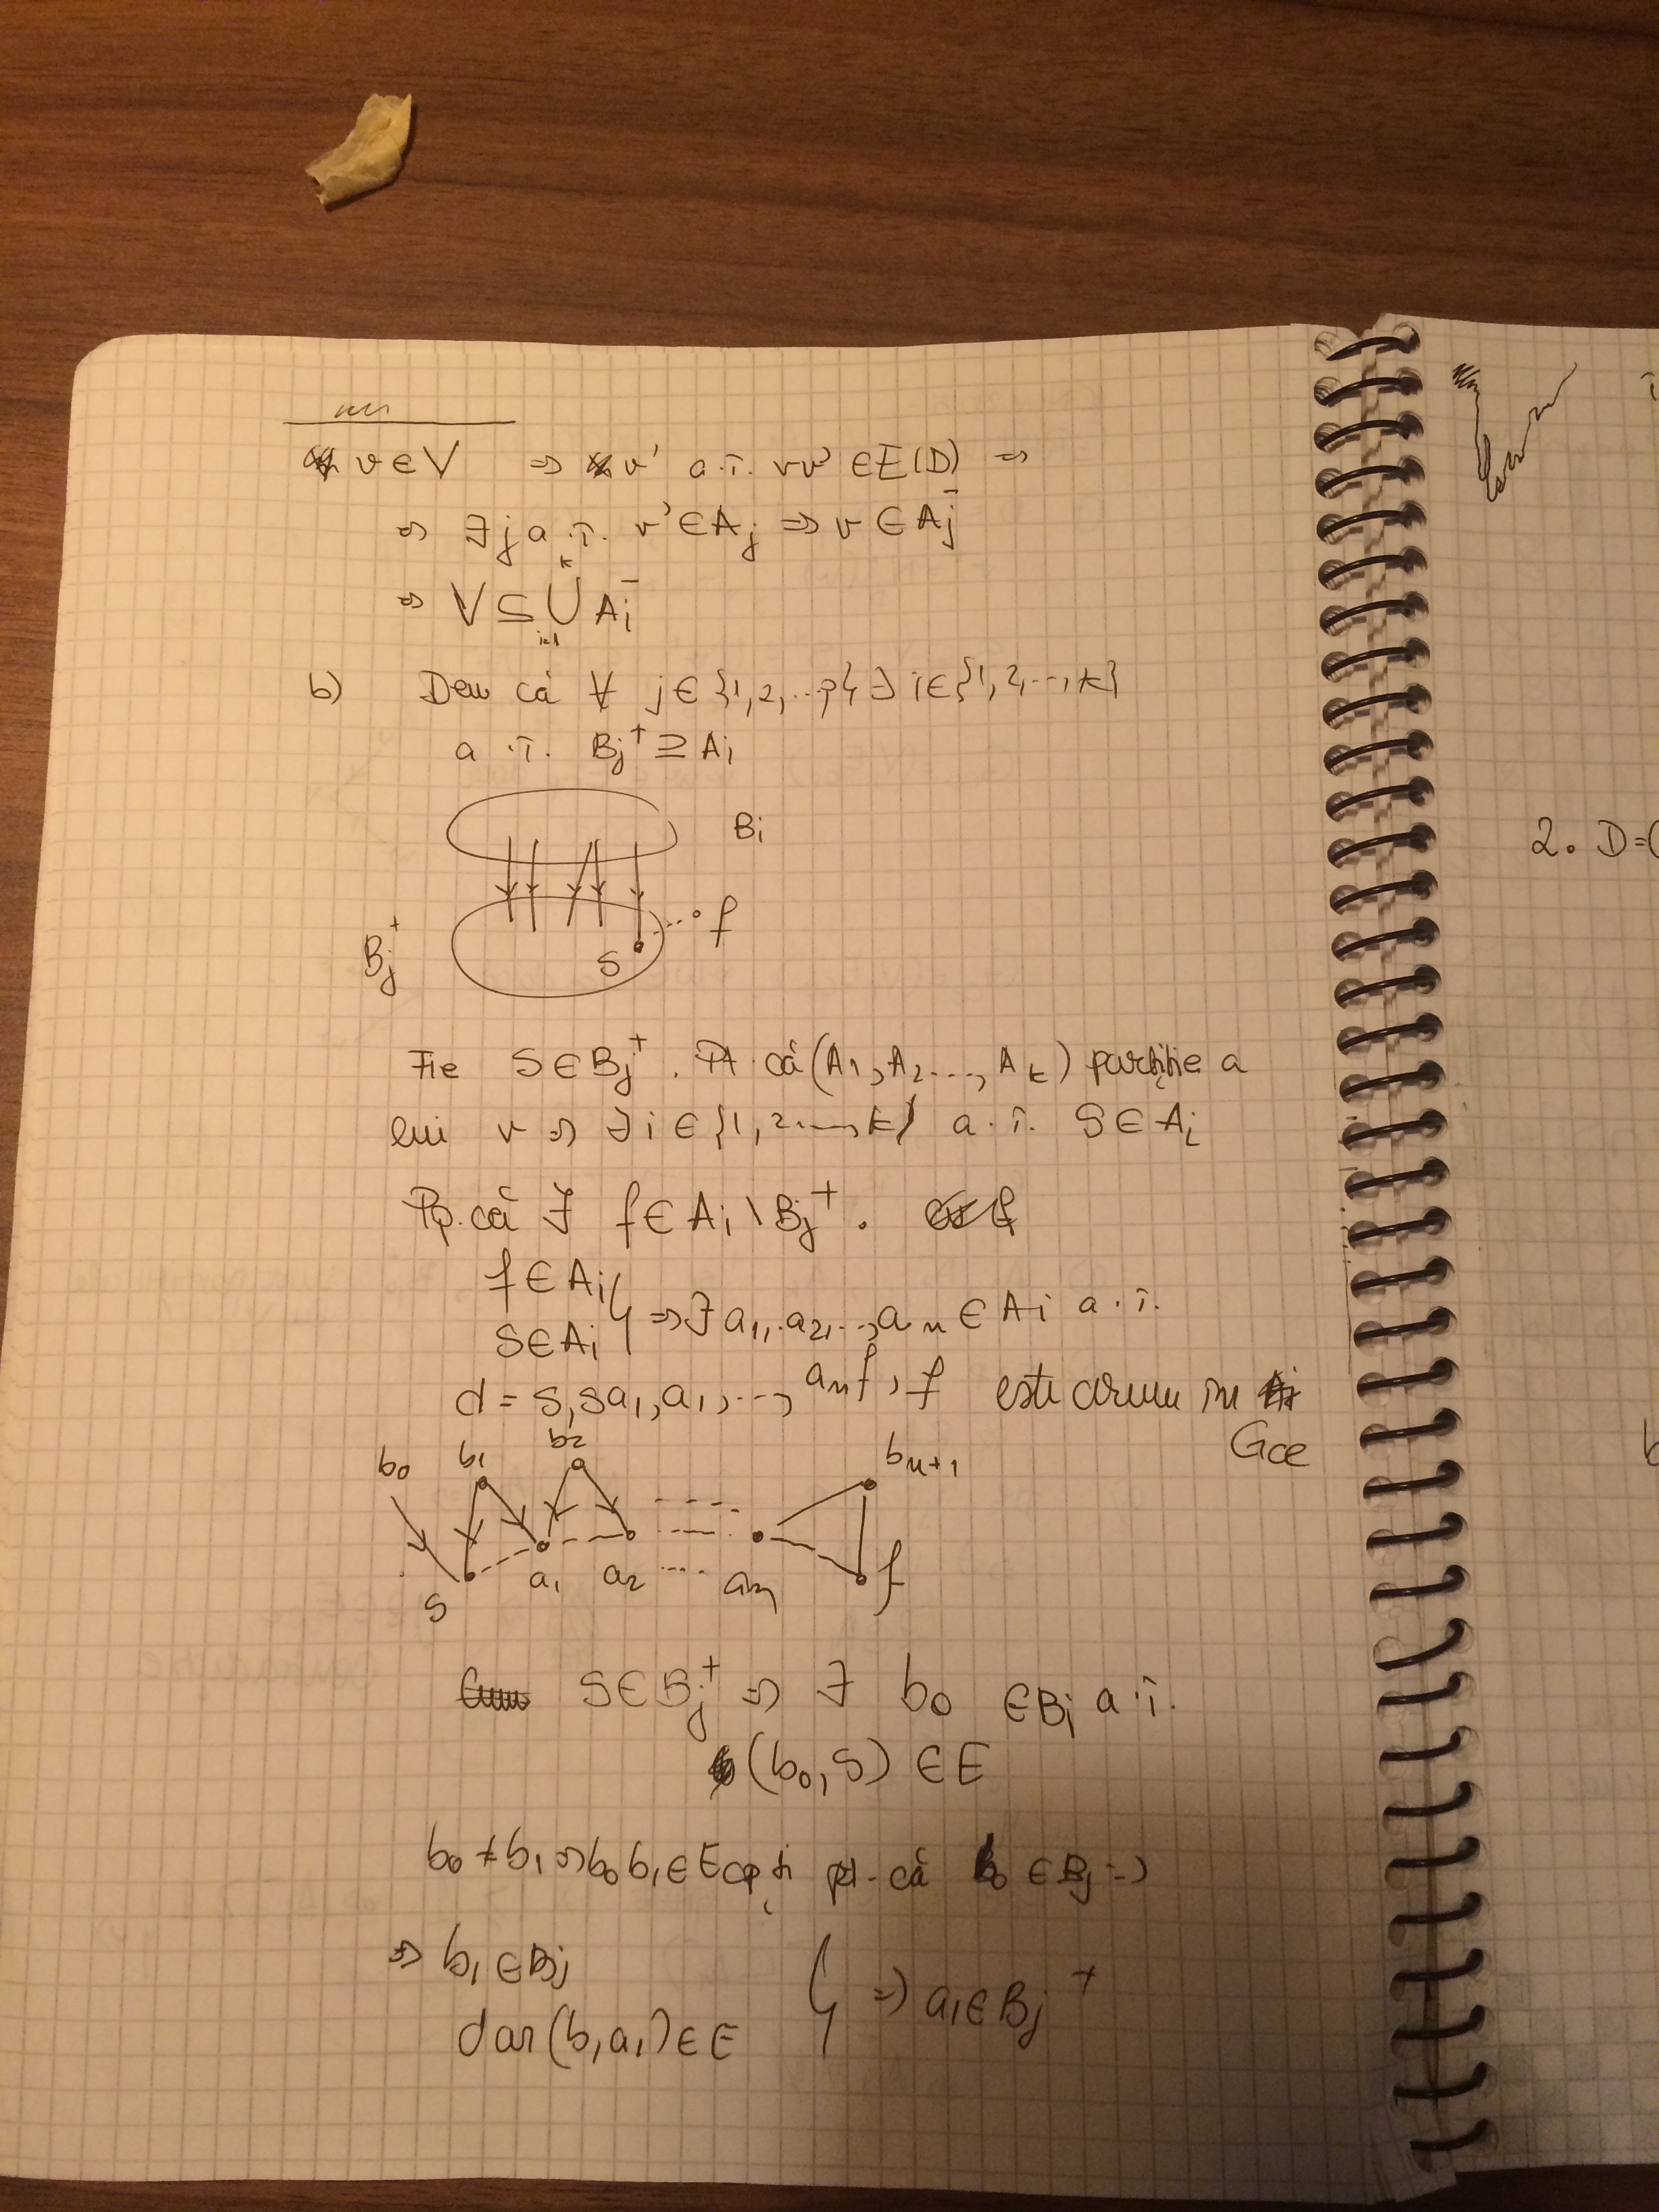 v ∈ V ⇒ v' a.î. vv' ∈ E(D) ⇒
⇒ ∃ j a.î. v' ∈ Aj ⇒ v ∈ Aj⁻
⇒ V ⊆ ⋃ᵏᵢ₌₁ Ai⁻
b) Dem că ∀ j ∈ {1,2,...p} ∃ i ∈ {1,2,...,k}
a.î. Bj⁺ ⊇ Ai
Bi
f
Bj⁺
S
Fie S ∈ Bj⁺. Pt. că (A1, A2..., Ak) partiție a
lui v ⇒ ∃ i ∈ {1,2...,k} a.î. S ∈ Ai
Pp. că ∃ f ∈ Ai \ Bj⁺.
f ∈ Ai
S ∈ Ai } ⇒ ∃ a1, a2,..., an ∈ Ai a.î.
d = S, Sa1, a1, ..., anf, f este drum in
Gce
b0 b1 b2 bn+1
S a1 a2 .... an f
S ∈ Bj⁺ ⇒ ∃ b0 ∈ Bj a.î.
(b0, S) ∈ E
b0 ≠ b1 ⇒ b0b1 ∈ Ecp și pt. că b0 ∈ Bj ⇒
⇒ b1 ∈ Bj
dar (b1a1) ∈ E } ⇒ a1 ∈ Bj⁺
2. D=(